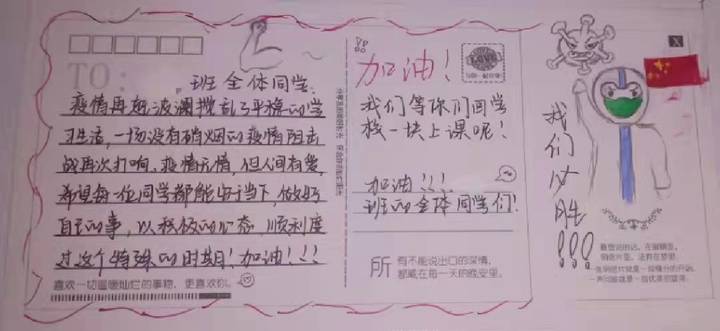 TO：
班全体同学：
疫情再起波澜搅乱了平稳的学
习生活，一场没有硝烟的疫情阻击
战再次打响。疫情无情，但人间有爱，
希望每一位同学都能安于当下，做好
自己的事，以积极的心态，顺利度
过这个特殊的时期！加油！！！
喜欢一切温暖灿烂的事物，更喜欢你。
加油！
LOVE
我们等你们回学
校一块上课呢！
加油！！！
班的全体同学们！
所有不能说出口的深情，
都藏在每一天的晚安里。
我们必胜！！！